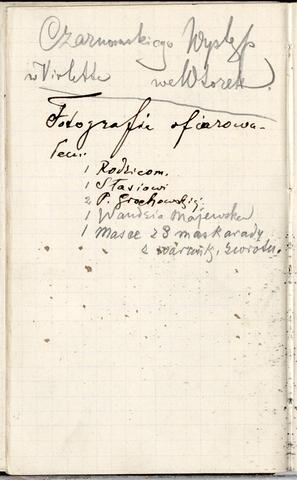 Czarnowskiego Występ
w Violetta we Wtorek.
Fotografii ofiarowa-
łem:
1 Rodzicom.
1 Stasiowi
2 P. Grochowskiej.
1 Wandzia Majewska
1 Masce z 3 maskarady
z warunk. zwrotu.